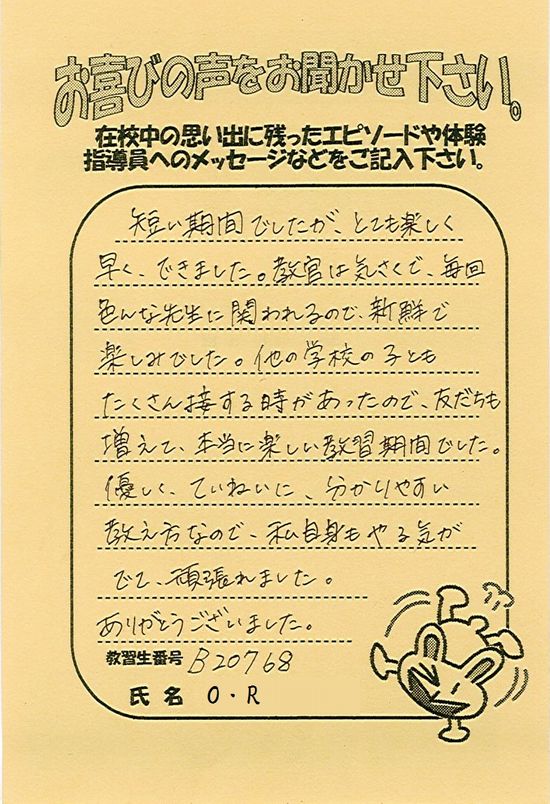 お喜びの声をお聞かせ下さい。
在校中の思い出に残ったエピソードや体験
指導員へのメッセージなどをご記入下さい。
短い期間でしたが、とても楽しく
早く、できました。教官は気さくで、毎回
色んな先生に関われるので、新鮮で
楽しみでした。他の学校の子とも
たくさん接する時があったので、友だちも
増えて、本当に楽しい教習期間でした。
優しく、ていねいに、分かりやすい
教え方なので、私自身もやる気が
でて、頑張れました。
ありがとうございました。
教習生番号 B20768
氏名 O・R